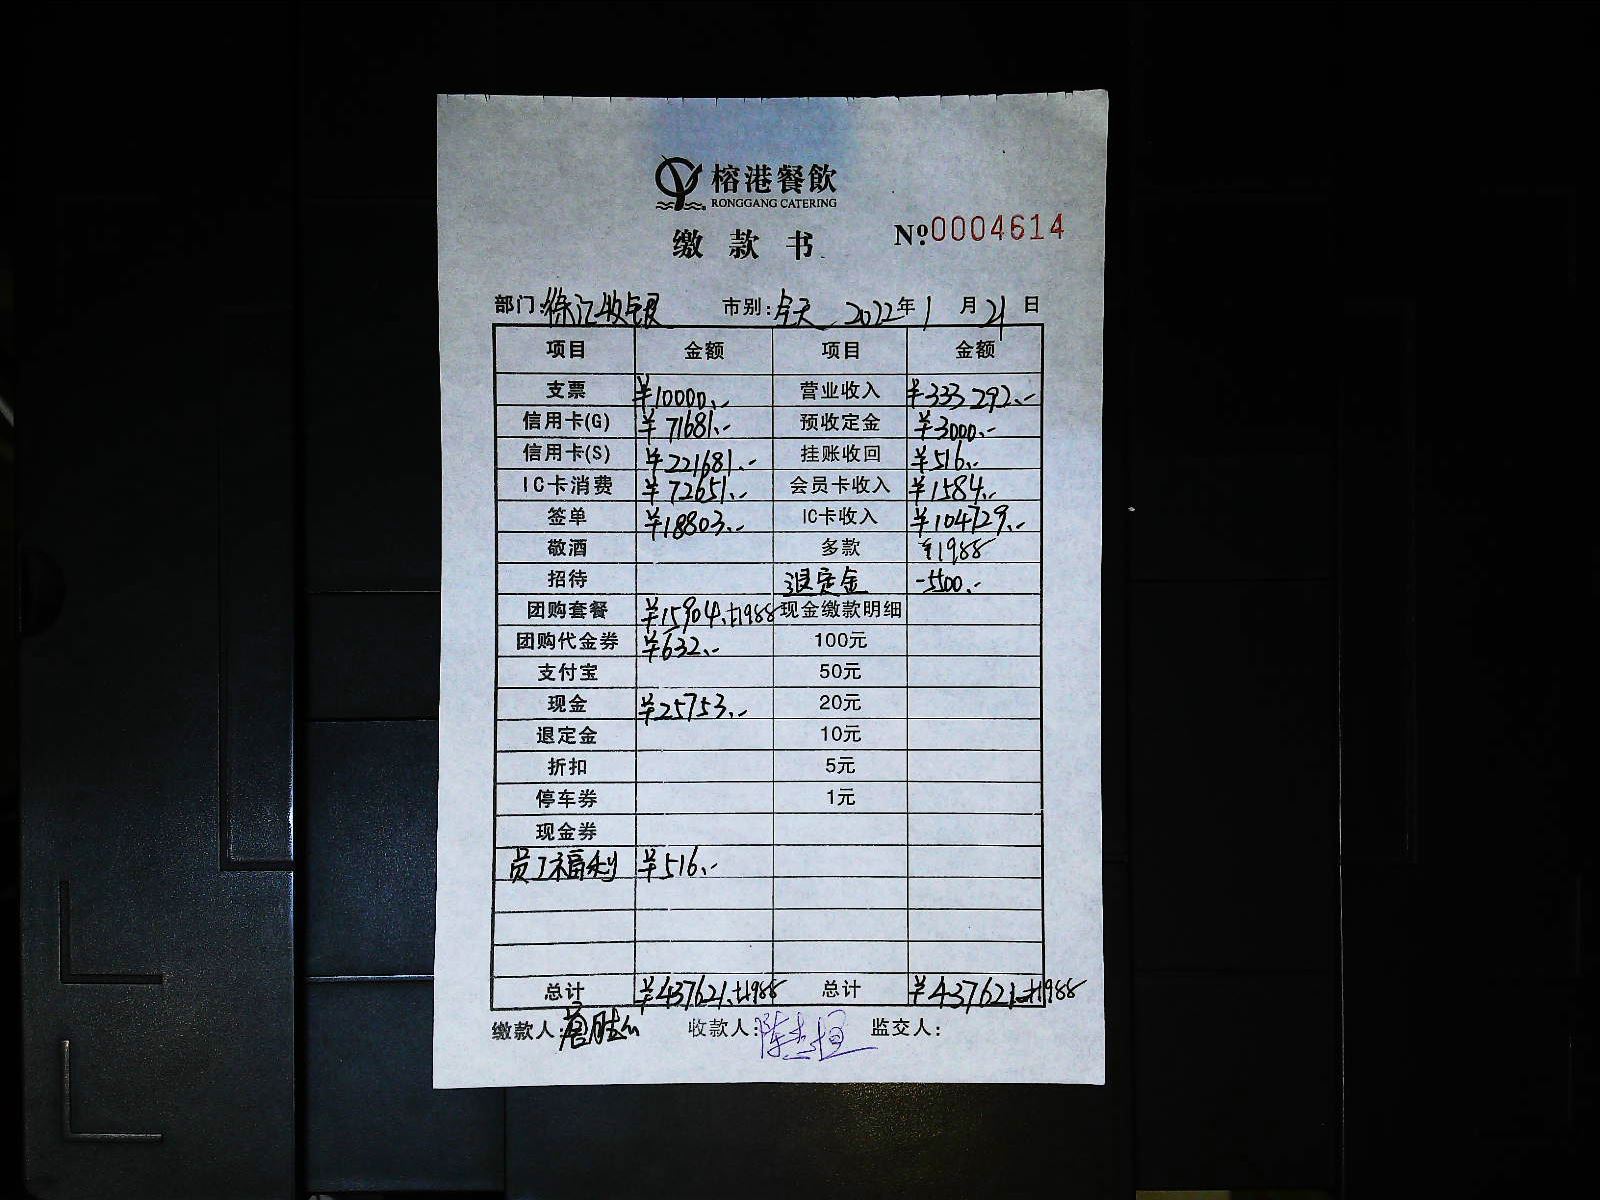 榕港餐飲
RONGGANG CATERING
缴款书
№0004614
部门:徐汇收银 市别:今天 2022年1月21日
项目 金额 项目 金额
支票 ¥10000.- 营业收入 ¥333292.-
信用卡(G) ¥71681.- 预收定金 ¥3000.-
信用卡(S) ¥221681.- 挂账收回 ¥516.-
IC卡消费 ¥72651.- 会员卡收入 ¥1584.-
签单 ¥18803.- IC卡收入 ¥104729.-
敬酒 多款 ¥1988
招待 退定金 -5500.-
团购套餐 ¥15904.+1988 现金缴款明细
团购代金券 ¥632.- 100元
支付宝 50元
现金 ¥25753.- 20元
退定金 10元
折扣 5元
停车券 1元
现金券
员工福利 ¥516.-
总计 ¥437621.+1988 总计 ¥437621.+1988
缴款人: 收款人: 监交人: